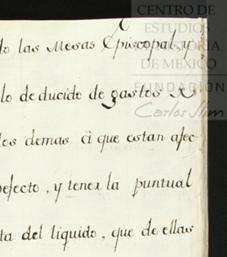 CENTRO DE
ESTUDIOS
DE HISTORIA
DE MÉXICO
FUNDACIÓN
Carlos Slim
do las Mesas Episcopal, y
lo deducido de gastos
los demas ci que estan afec
efecto, y tener la puntual
ta del liquido, que de ellas